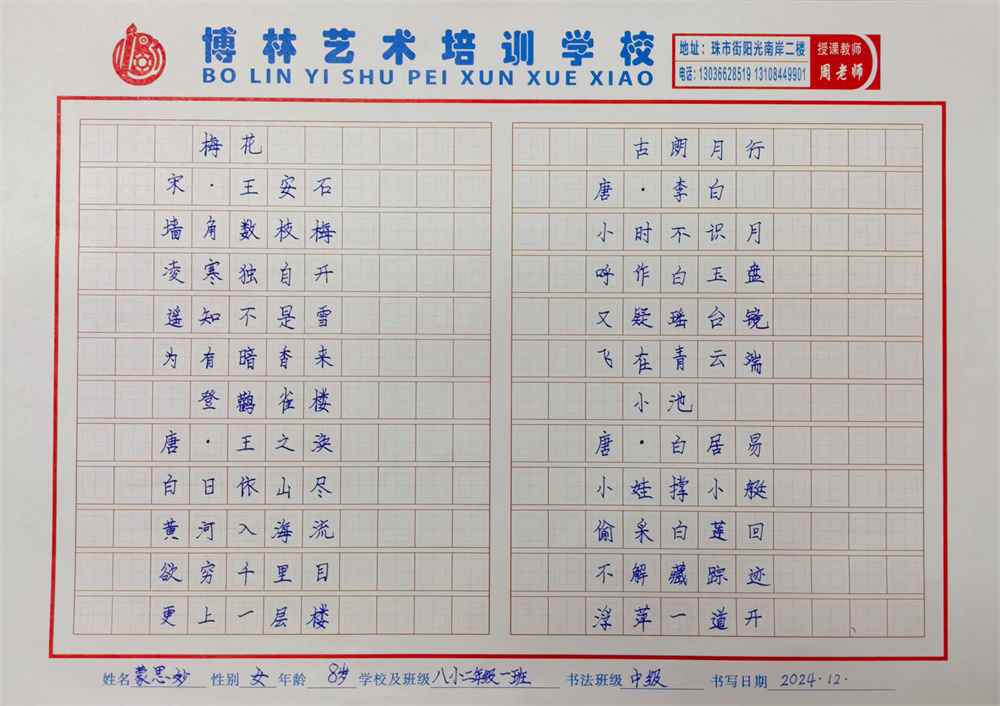 博林艺术培训学校
BO LIN YI SHU PEI XUN XUE XIAO
地址：珠市街阳光南岸二楼
电话：13036628519 13108449901
授课教师
周老师
梅花
宋·王安石
墙角数枝梅
凌寒独自开
遥知不是雪
为有暗香来
登鹳雀楼
唐·王之涣
白日依山尽
黄河入海流
欲穷千里目
更上一层楼
古朗月行
唐·李白
小时不识月
呼作白玉盘
又疑瑶台镜
飞在青云端
小池
唐·白居易
小娃撑小艇
偷采白莲回
不解藏踪迹
浮萍一道开
姓名 蒙思妙 性别 女 年龄 8岁 学校及班级 八小二年级一班 书法班级 中级 书写日期 2024.12.